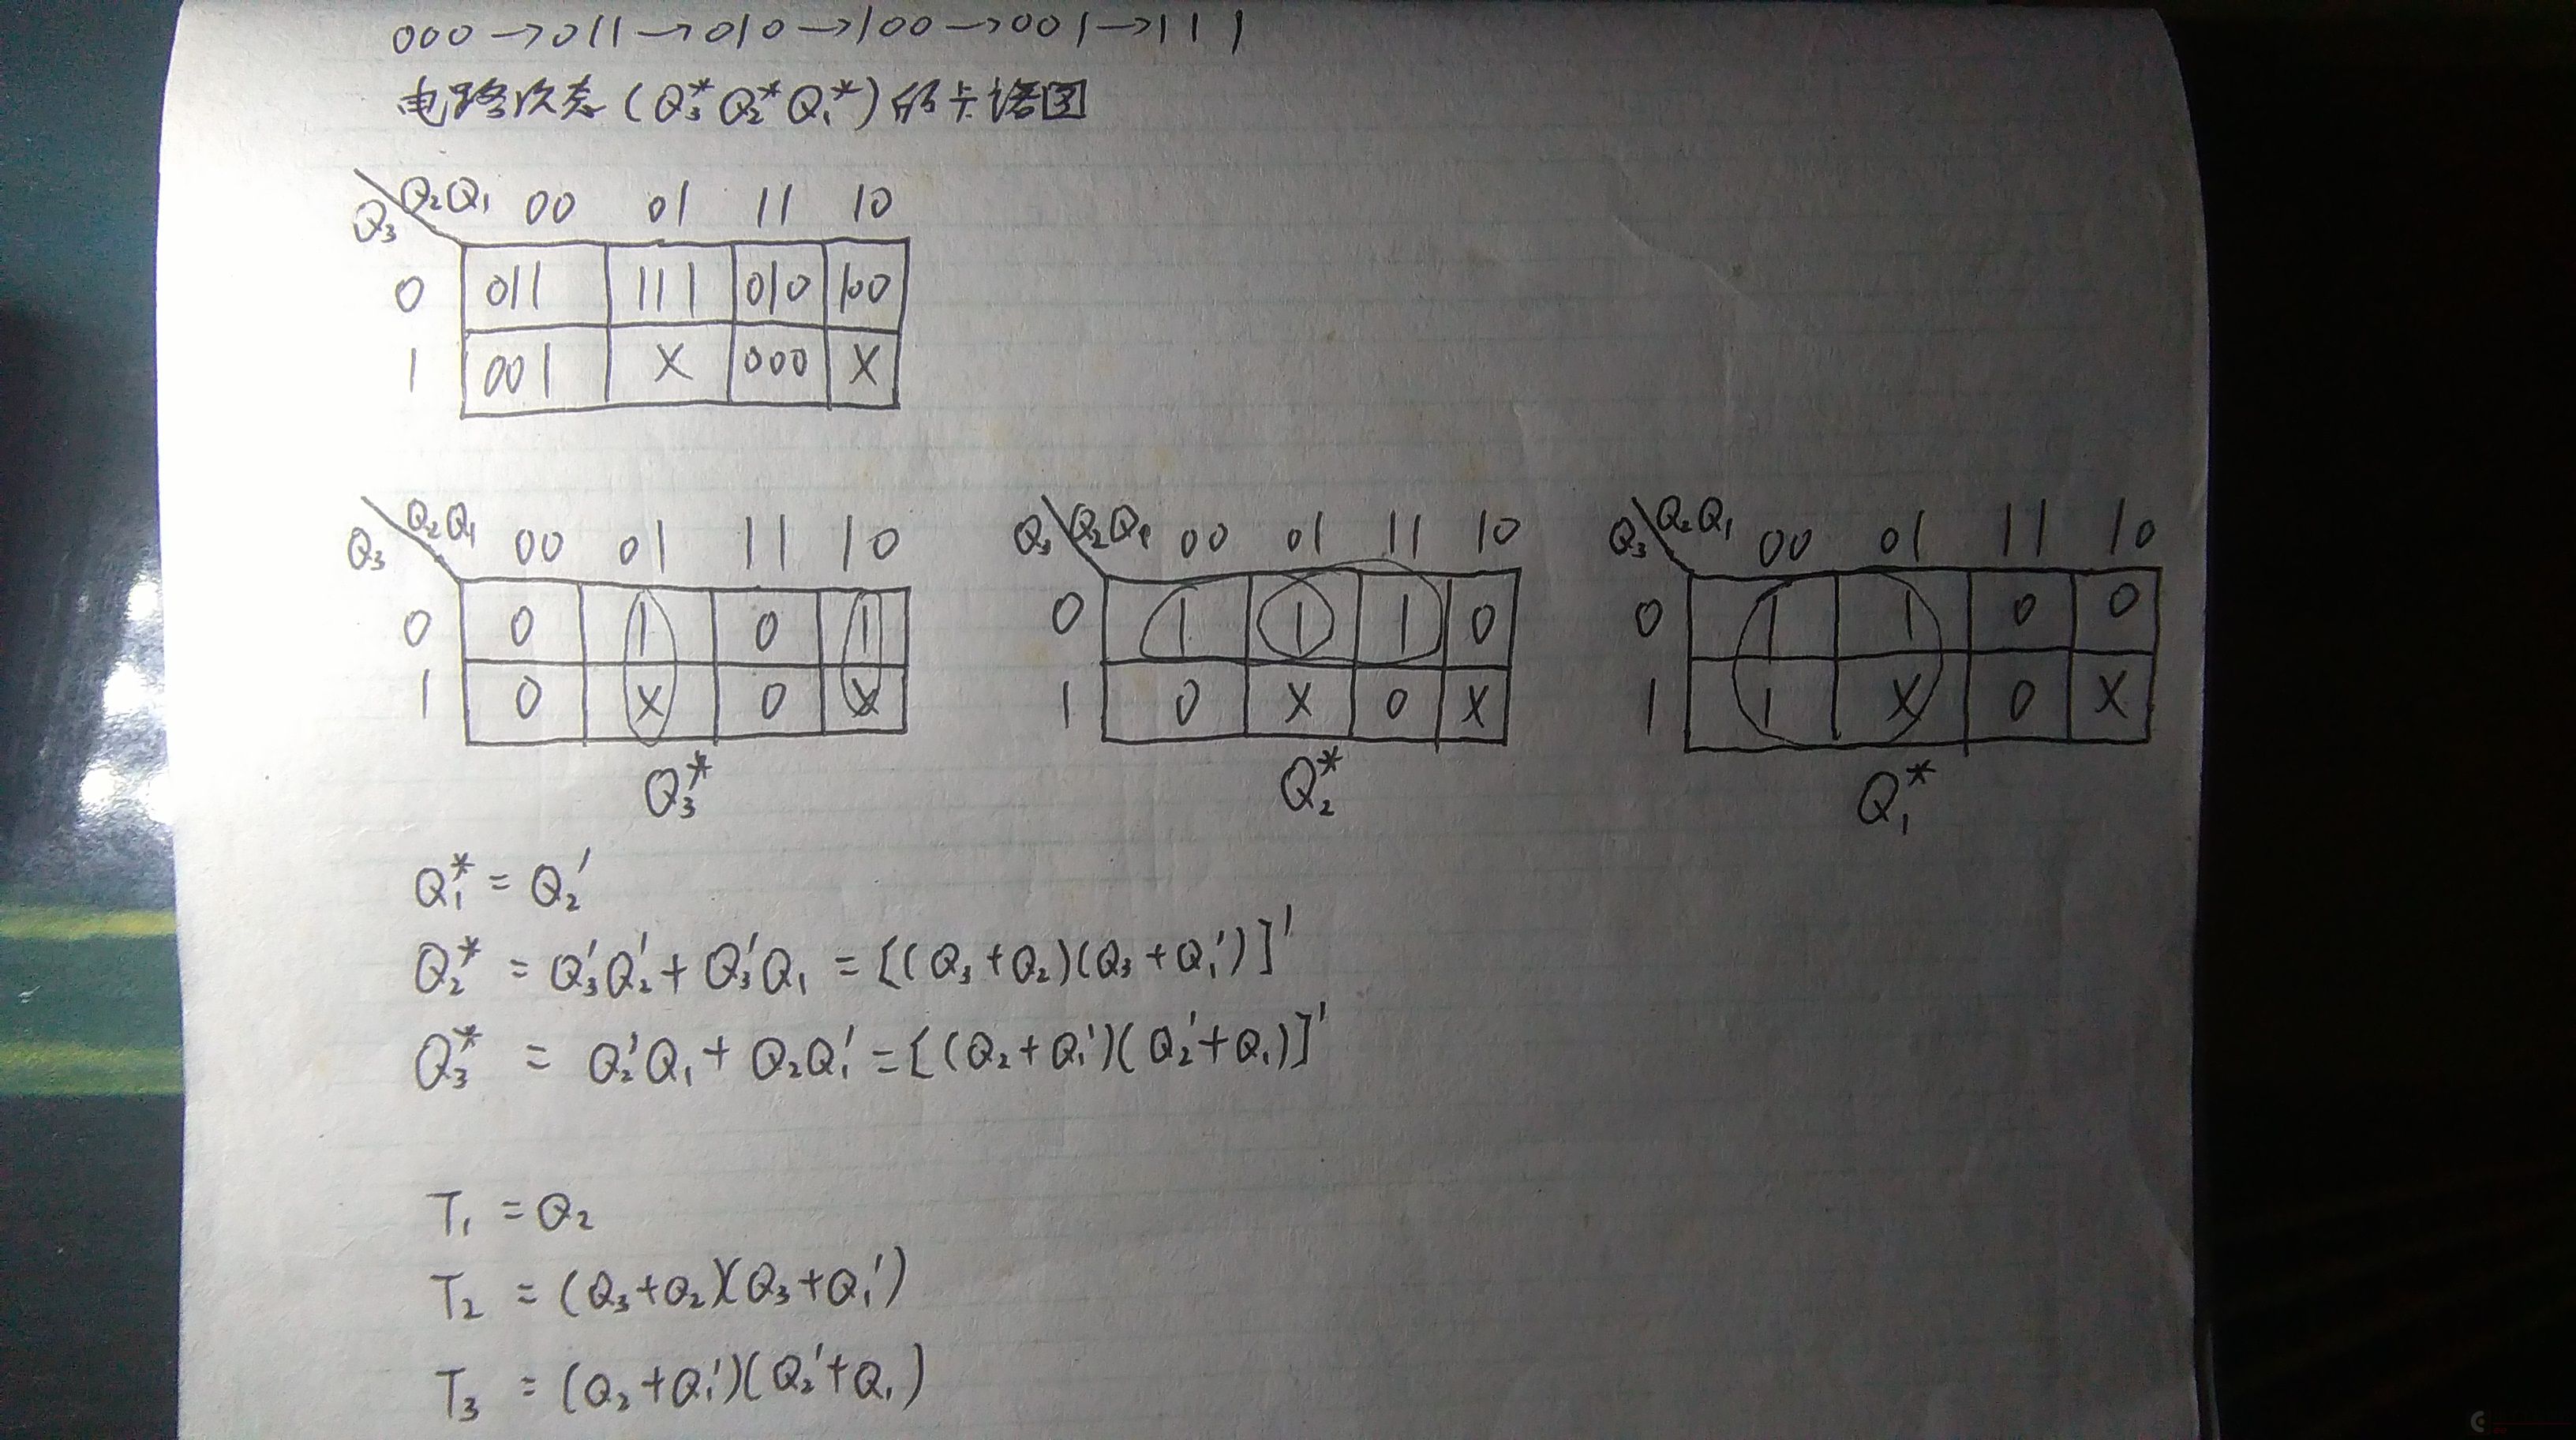 000→011→010→100→001→111
电路次态(Q₃*Q₂*Q₁*)的卡诺图
Q₂Q₁ 00 01 11 10
Q₃
0 011 111 010 100
1 001 X 000 X
Q₂Q₁ 00 01 11 10
Q₃
0 0 1 0 1
1 0 X 0 X
Q₃*
Q₃ Q₂Q₁ 00 01 11 10
0 1 1 1 0
1 0 X 0 X
Q₂*
Q₃ Q₂Q₁ 00 01 11 10
0 1 1 0 0
1 1 X 0 X
Q₁*
Q₁* = Q₂'
Q₂* = Q₃'Q₂' + Q₃'Q₁ = [(Q₃+Q₂)(Q₃+Q₁')]'
Q₃* = Q₂'Q₁ + Q₂Q₁' = [(Q₂+Q₁')(Q₂'+Q₁)]'
T₁ = Q₂
T₂ = (Q₃+Q₂)(Q₃+Q₁')
T₃ = (Q₂+Q₁')(Q₂'+Q₁)